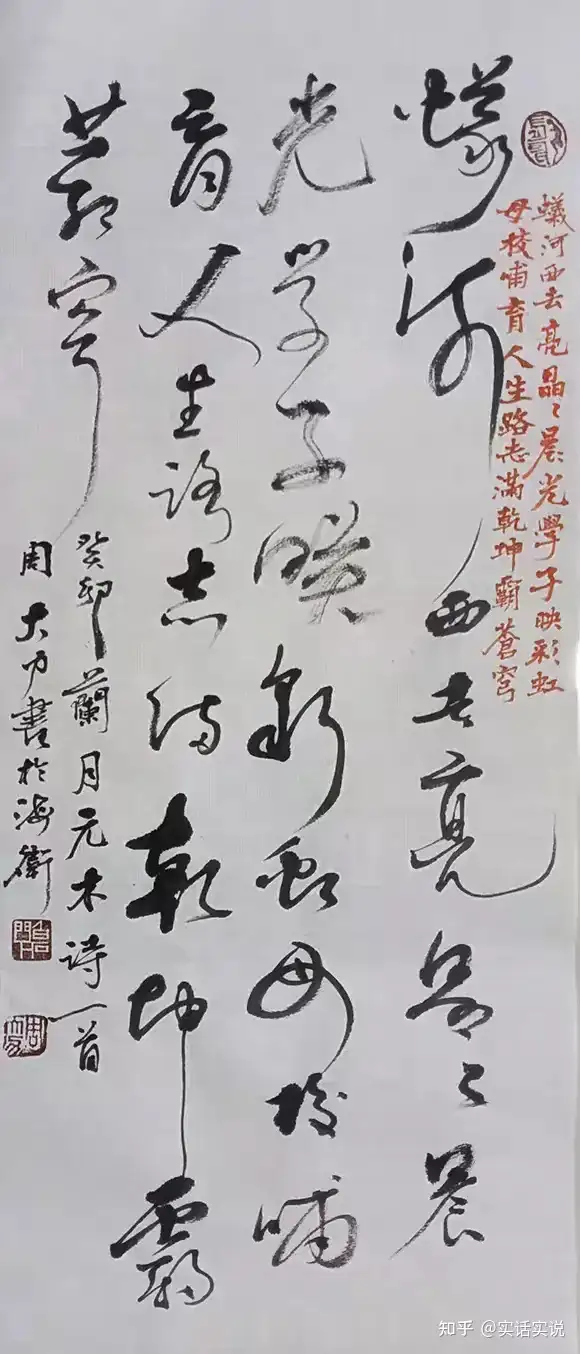 蟻河西去亮晶〻晨光學子映彩虹
母校哺育人生路志滿乾坤霸蒼穹
蟻河西去亮晶〻晨
光学子映彩虹母校哺
育人生路志満乾坤霸
蒼穹
癸卯蘭月元木詩一首
周大力書於海衛
知乎 @实话实说